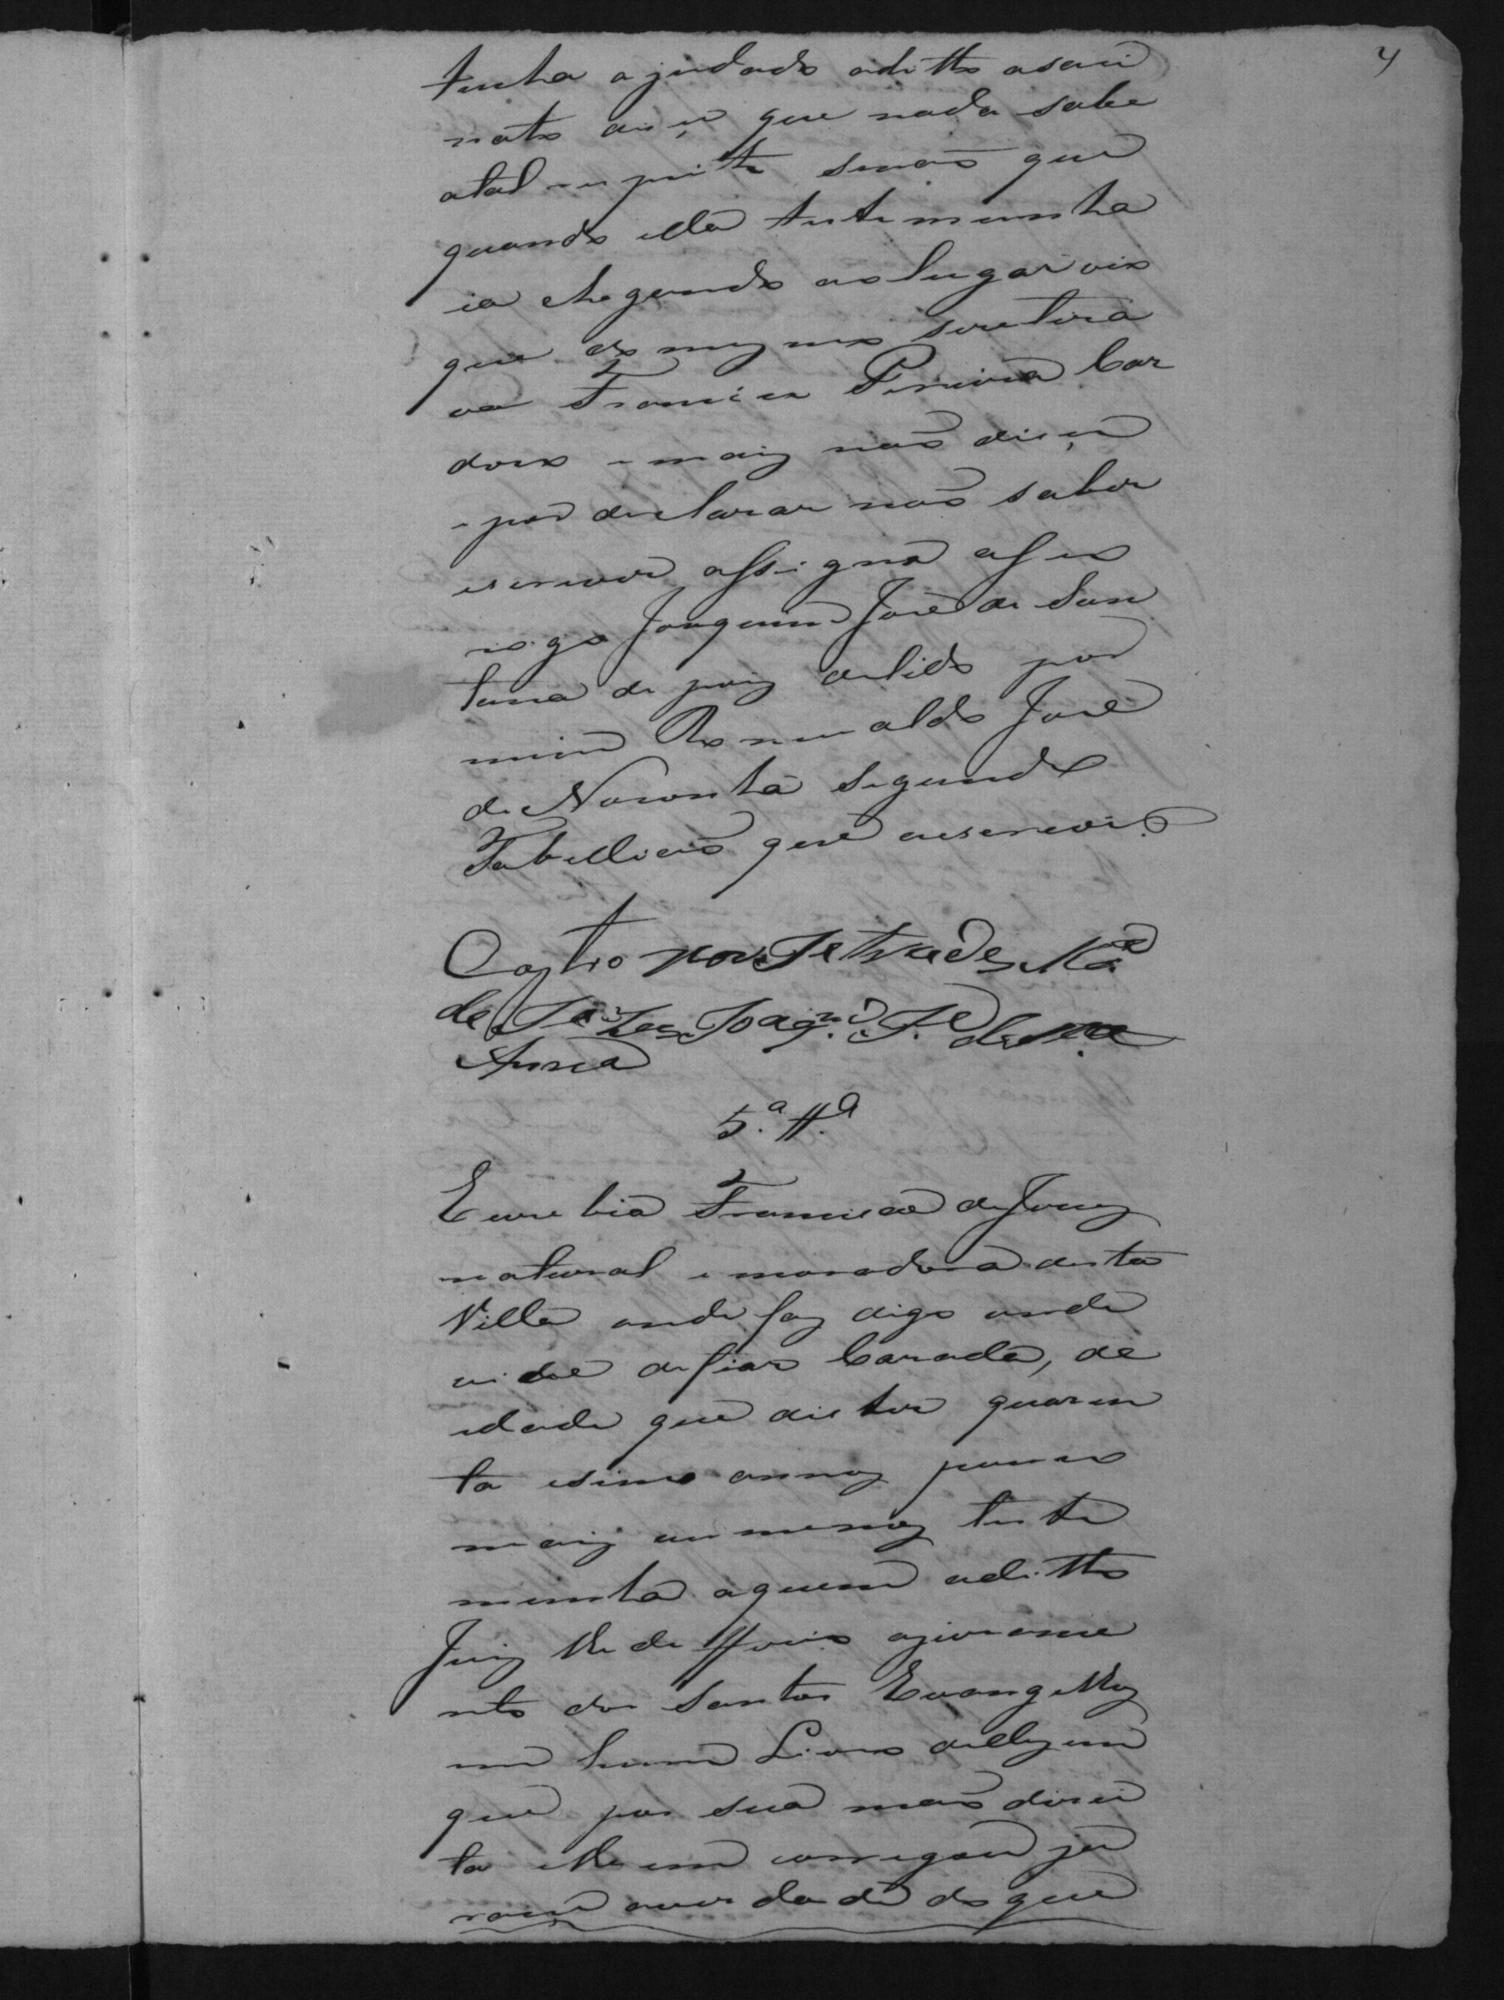 4
tinha ajudado aditto asaci
nato disse que nada sabe
atal respeito senão que
quando ella testemunha
ia chegando ao lugar vio
que do mesmo seretira
va Francisca Pereira Car
dozo e mais não disse
e por declarar não saber
escrever assigna aseo
rogo Joaquim José de San
tana depois delido por
mim Romualdo José
de Noronha segundo
Tabellião que escrevi
Castro
de Joaqm. Je. de
Anna
5.ª tt.ª
Eusebia Francisca de Jesus
natural e moradora desta
Villa onde faz digo onde
vive defiar Carada, de
idade que disse ter quaren
ta esinco annos pouco
mais oumenos teste
munha aquem aditto
Juiz lhe deffirio ojurame
nto dos Santos Evangelhos
em hum Livro delles em
que por sua mão direi
ta
averdade do que